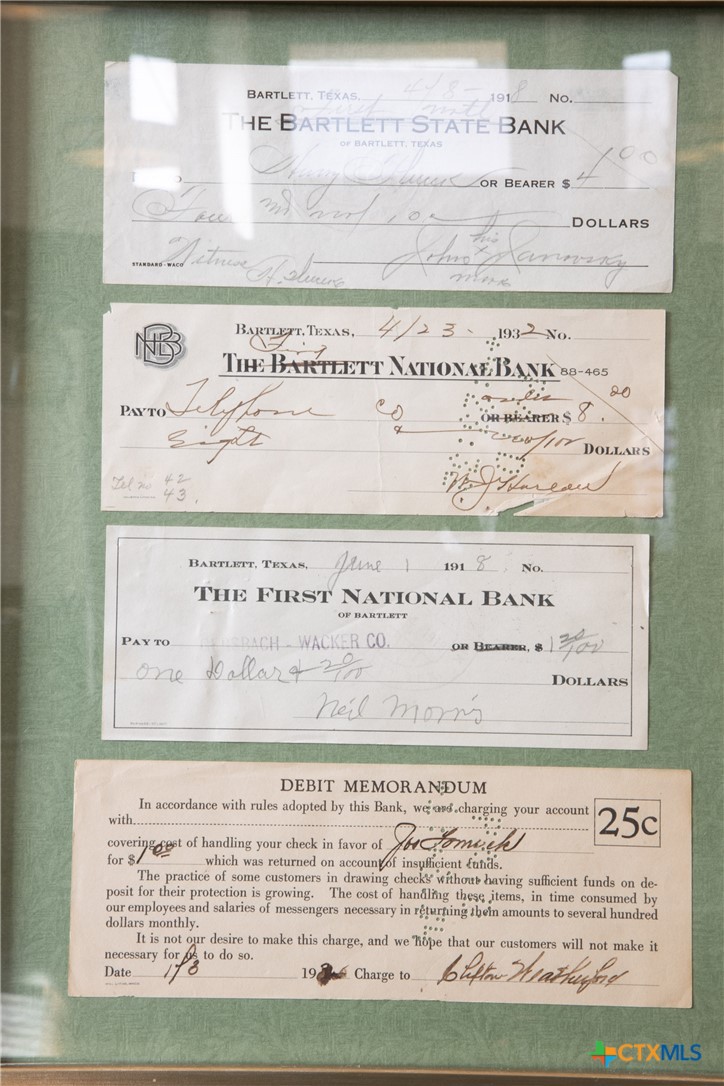 BARTLETT, TEXAS, 4/8- 1918 No.
First Natl
THE BARTLETT STATE BANK
OF BARTLETT, TEXAS
OR BEARER $ 4 00
Four and no/100 DOLLARS
STANDARD-WACO Witness John his x mark Janovsky
BARTLETT, TEXAS, 4/23- 1932 No.
NBB
First
THE BARTLETT NATIONAL BANK 88-465
PAY TO Telephone Co OR BEARER $ 8.20
Eight & 20/100 DOLLARS
Tel no 42
43.
BARTLETT, TEXAS, June 1 1918 No.
THE FIRST NATIONAL BANK
OF BARTLETT
PAY TO - WACKER CO. OR BEARER, $ 1 20/100
One Dollar & 20/100 DOLLARS
Neil Morris
DEBIT MEMORANDUM
In accordance with rules adopted by this Bank, we are charging your account
with
25c
covering cost of handling your check in favor of Joe
for $1.00 which was returned on account of insufficient funds.
The practice of some customers in drawing checks without having sufficient funds on de-
posit for their protection is growing. The cost of handling these items, in time consumed by
our employees and salaries of messengers necessary in returning them amounts to several hundred
dollars monthly.
It is not our desire to make this charge, and we hope that our customers will not make it
necessary for us to do so.
Date 1/3 19 Charge to Clifton Weatherford
CTXMLS